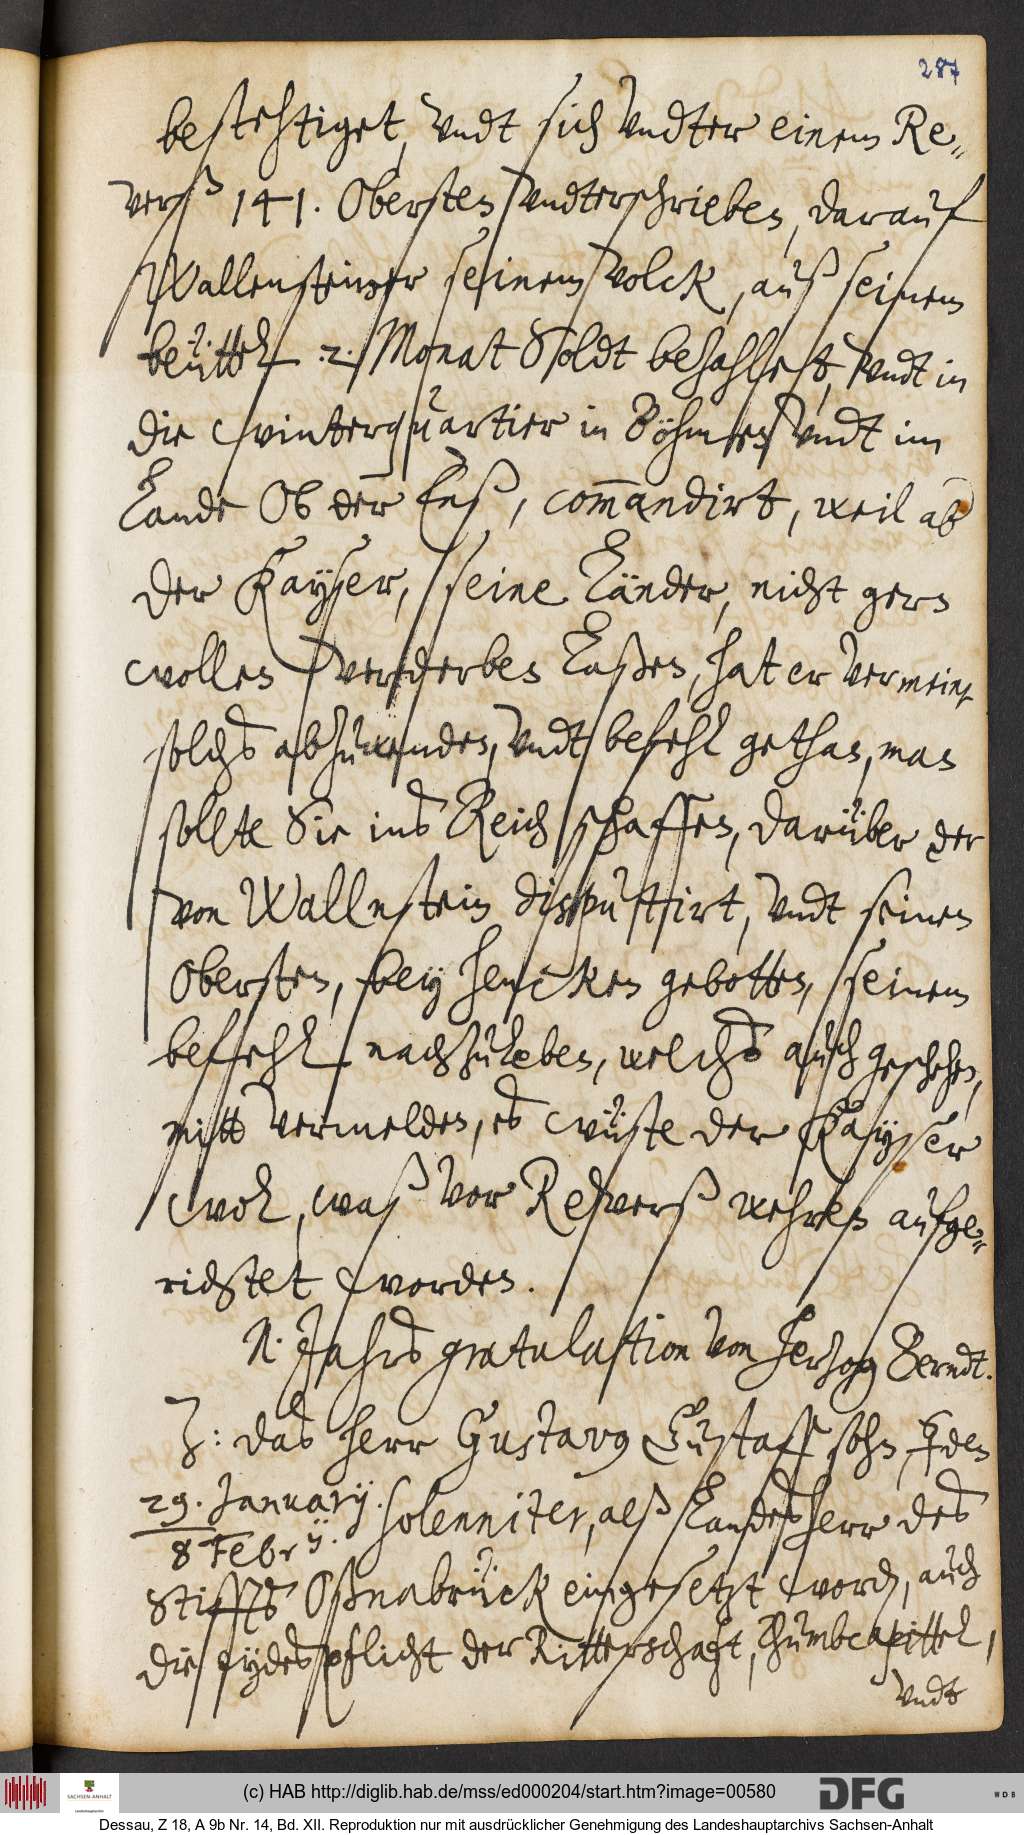 287
bestehtiget, undt sich undter einem Re„
verß 141. Obersten undterschrieben, darauf
Wallensteiner seinem volck, auß seinem
beüttel .2. Monat Soldt bezahlest, undt in
die winterquartier in Böhmen undt im
Lande Ob der Enß, com̄andirt, weil ab
der Kayser, seine Länder, nicht gern
wollen verderben Laßen, hat er vermeint
solchs abzuwenden, undt befehl gethan, man
sollte Sie ins Reich schaffen, darüber der
von Wallnstein disputtirt, undt seinen
Obersten, bey hencken gebotten, seinem
beffehl nachzuleben, welchs auch geschehen,
mitt vermelden, es wüste der Kayser
wol, waß vor Reverß wehren aufge„
richtet worden.
N. Jahrs gratulation von Herzog Berndt.
Z: das herr Gustavg Gustaff sohn, den
29. January.
8 Febry. solenniter, alß Landesherr des
Stiffts Oßnabrück eingesetzt word, auch
die eydespflicht der Ritterschaft, Thumbcapittel,
undt
(c) HAB http://diglib.hab.de/mss/ed000204/start.htm?image=00580
SACHSEN-ANHALT
DFG
WDB
Dessau, Z 18, A 9b Nr. 14, Bd. XII. Reproduktion nur mit ausdrücklicher Genehmigung des Landeshauptarchivs Sachsen-Anhalt